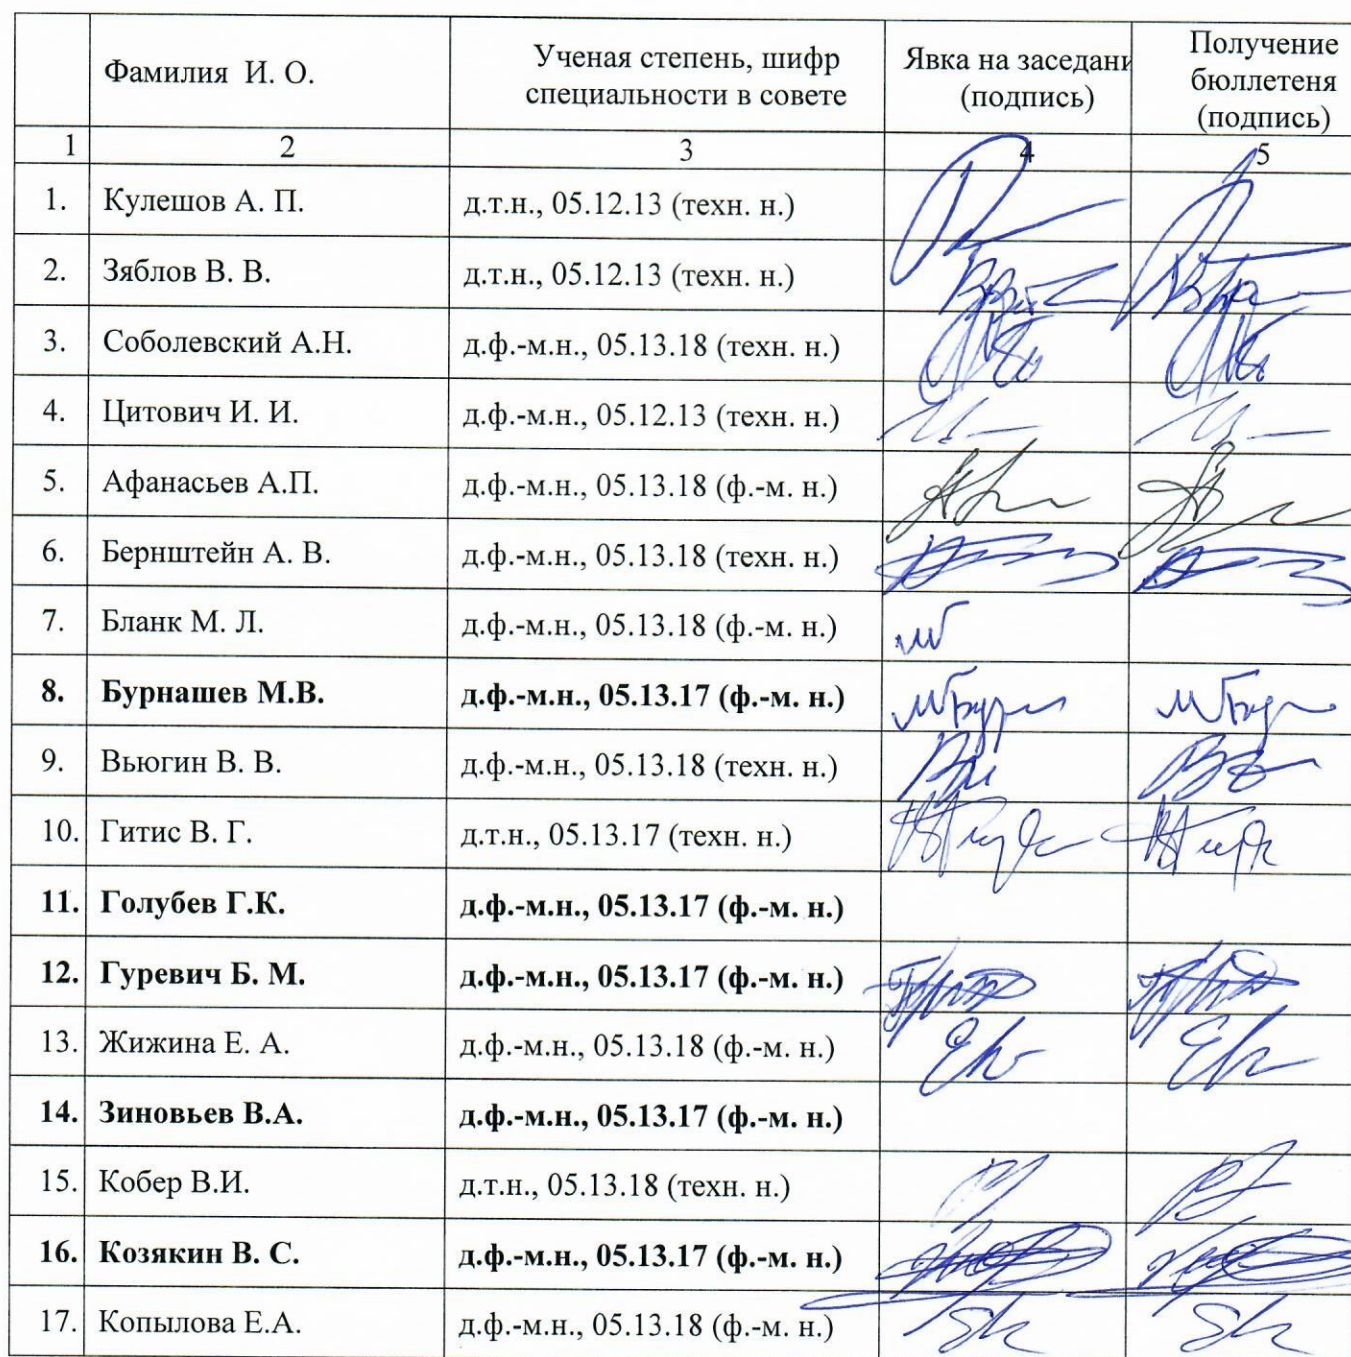 Фамилия И. О.
Ученая степень, шифр
специальности в совете
Явка на заседани
(подпись)
Получение
бюллетеня
(подпись)
1 2 3 4 5
1. Кулешов А. П. д.т.н., 05.12.13 (техн. н.)
2. Зяблов В. В. д.т.н., 05.12.13 (техн. н.)
3. Соболевский А.Н. д.ф.-м.н., 05.13.18 (техн. н.)
4. Цитович И. И. д.ф.-м.н., 05.12.13 (техн. н.)
5. Афанасьев А.П. д.ф.-м.н., 05.13.18 (ф.-м. н.)
6. Бернштейн А. В. д.ф.-м.н., 05.13.18 (техн. н.)
7. Бланк М. Л. д.ф.-м.н., 05.13.18 (ф.-м. н.)
8. Бурнашев М.В. д.ф.-м.н., 05.13.17 (ф.-м. н.)
9. Вьюгин В. В. д.ф.-м.н., 05.13.18 (техн. н.)
10. Гитис В. Г. д.т.н., 05.13.17 (техн. н.)
11. Голубев Г.К. д.ф.-м.н., 05.13.17 (ф.-м. н.)
12. Гуревич Б. М. д.ф.-м.н., 05.13.17 (ф.-м. н.)
13. Жижина Е. А. д.ф.-м.н., 05.13.18 (ф.-м. н.)
14. Зиновьев В.А. д.ф.-м.н., 05.13.17 (ф.-м. н.)
15. Кобер В.И. д.т.н., 05.13.18 (техн. н.)
16. Козякин В. С. д.ф.-м.н., 05.13.17 (ф.-м. н.)
17. Копылова Е.А. д.ф.-м.н., 05.13.18 (ф.-м. н.)